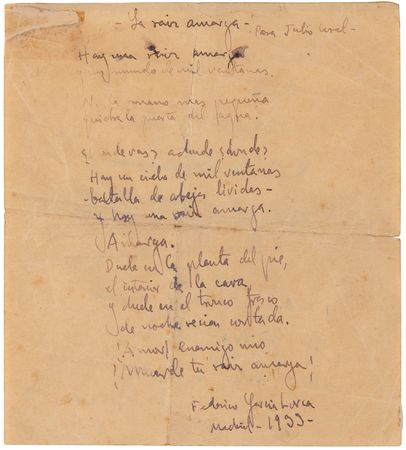 - La raiz amarga -
Para Julio
Hay una raiz amarga
y un mundo de mil ventanas.
Ni la mano mas pequeña
quiebra la puerta del agua.
¿donde vas, adonde, donde?
Hay un cielo de mil ventanas
- batalla de abejas lividas -
y hay una raiz amarga.
Amarga.
Duele en la planta del pie,
el interior de la cara,
y duele en el tronco fresco
de noche recien cortada.
¡Amor! enemigo mio
¡Muerde tu raiz amarga!
Federico García Lorca
Madrid - 1933 -